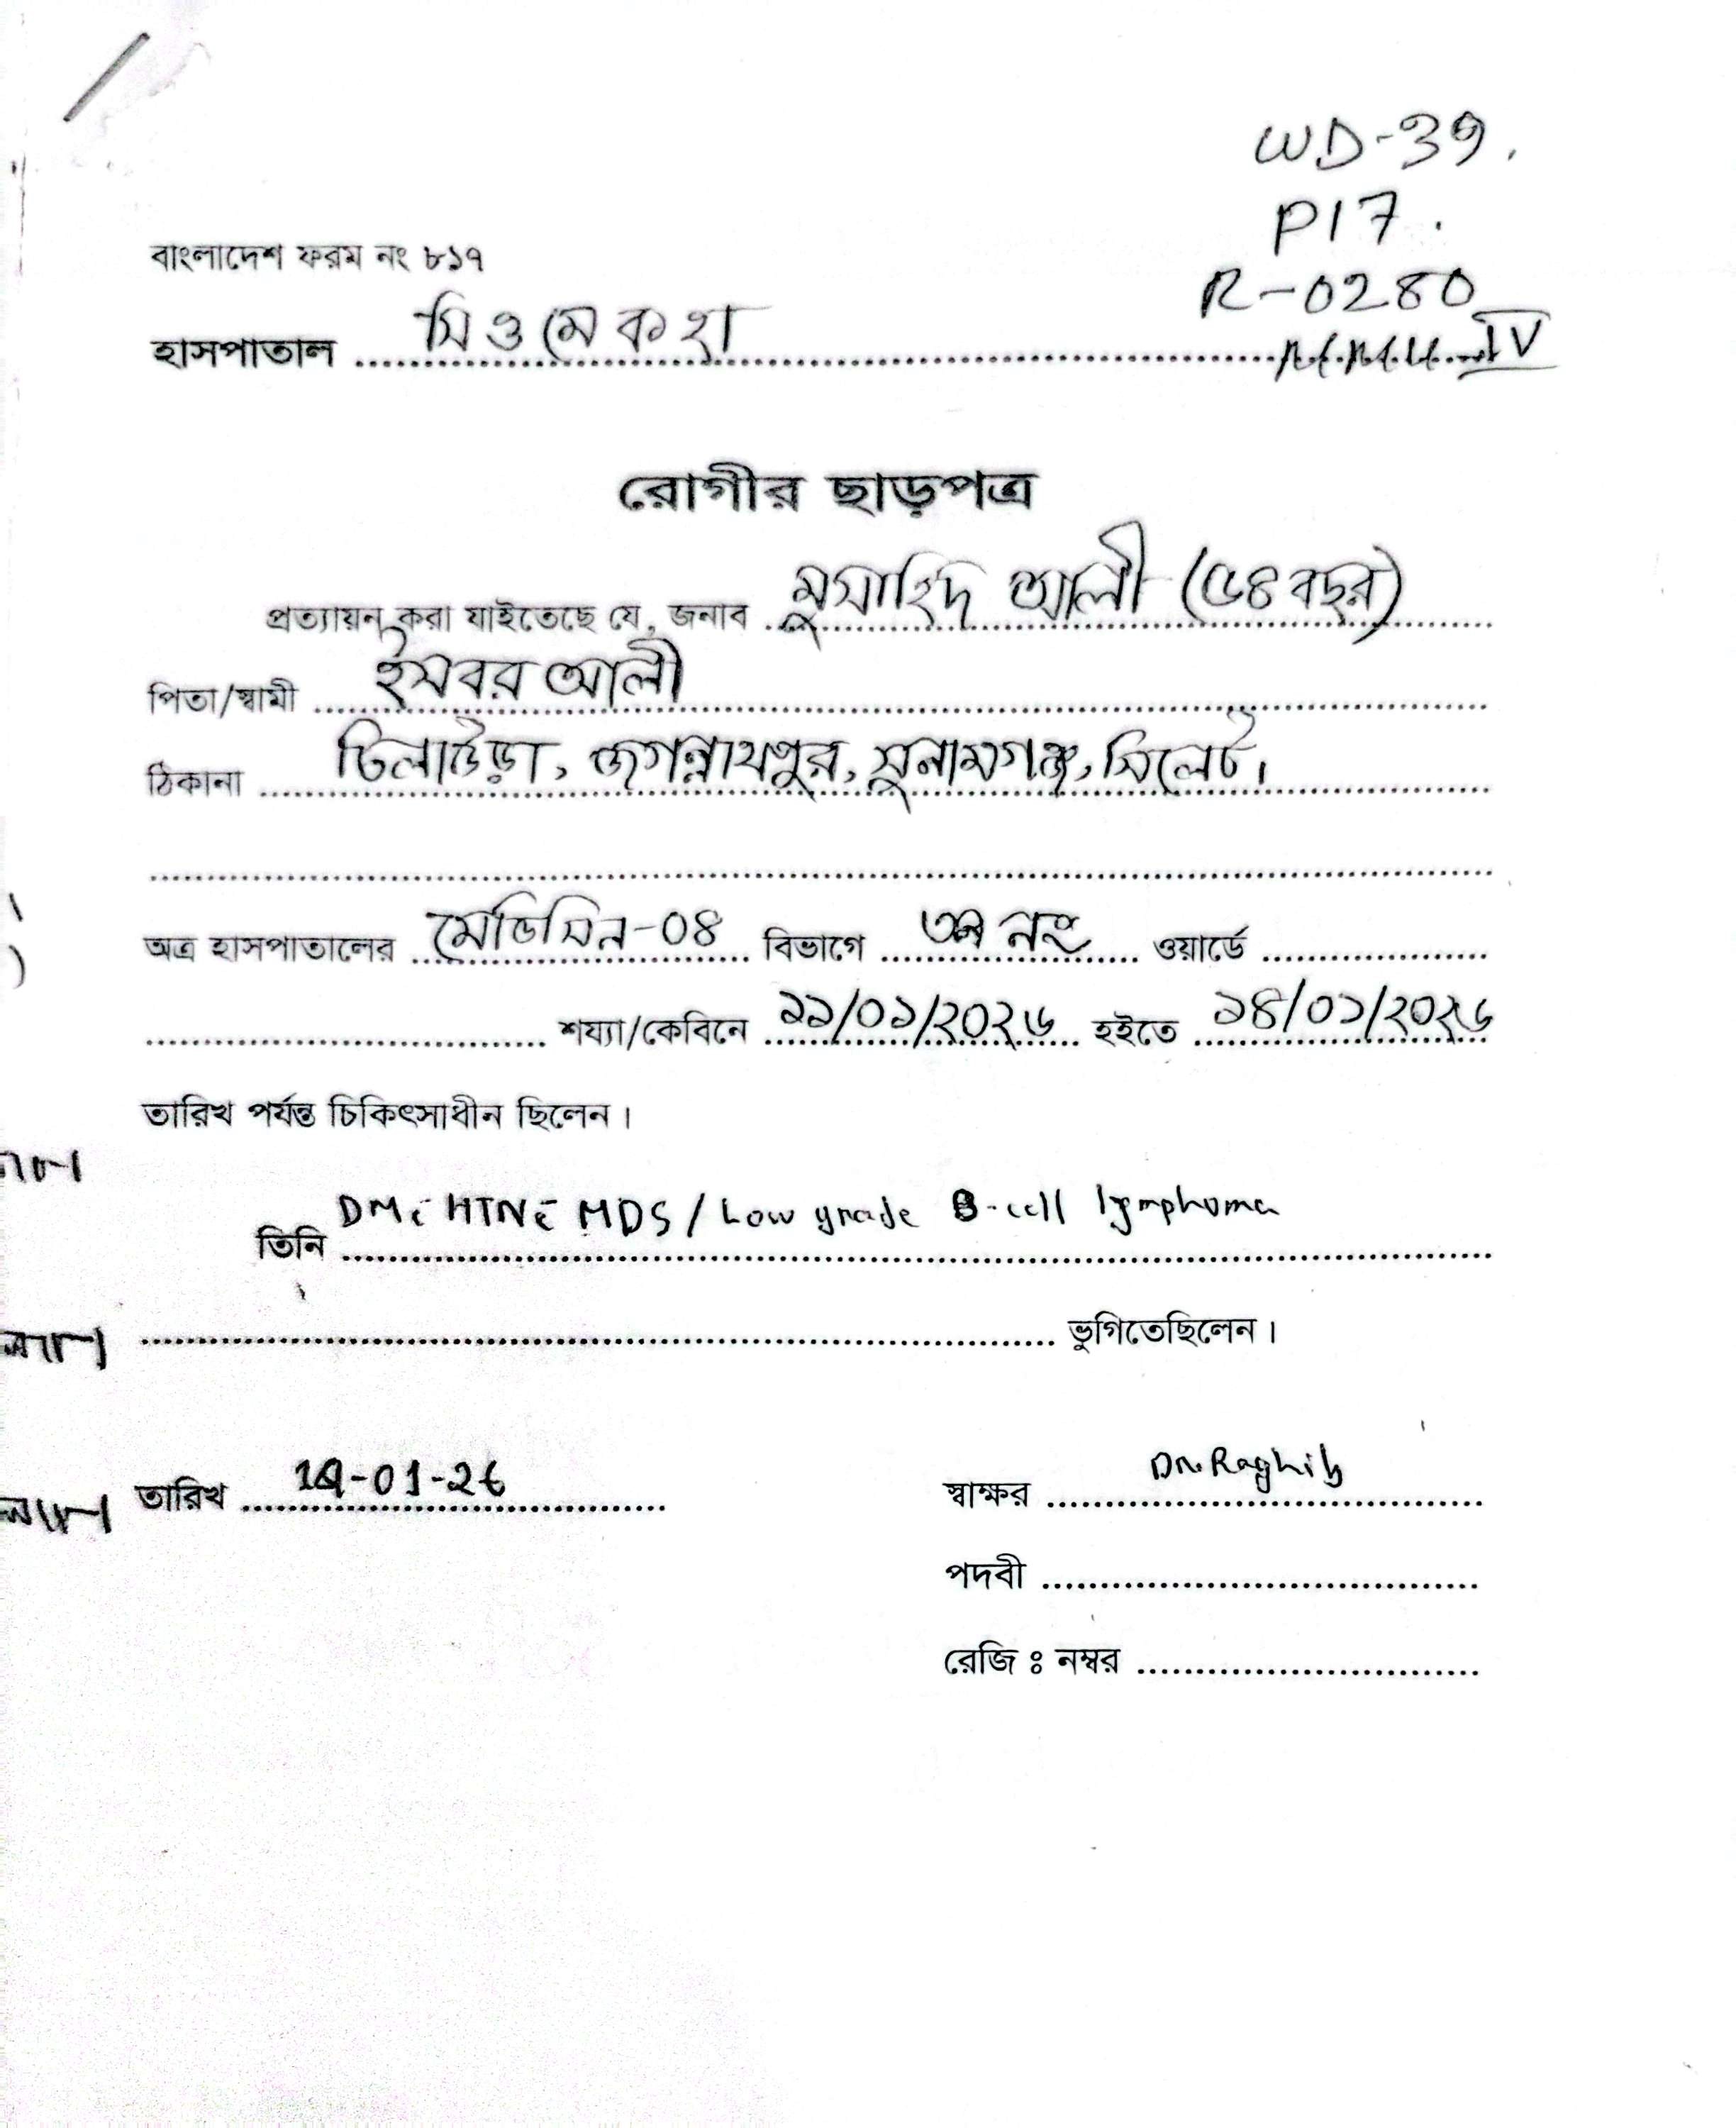 WD-39.
P17.
বাংলাদেশ ফরম নং ৮১৭
R-0280
হাসপাতাল সিওমেকহা
IV
রোগীর ছাড়পত্র
প্রত্যায়ন করা যাইতেছে যে, জনাব মুসাহিদ আলী (৫৪ বছর)
পিতা/স্বামী ইসবর আলী
ঠিকানা চিলাউড়া, জগন্নাথপুর, সুনামগঞ্জ, সিলেট।
অত্র হাসপাতালের মেডিসিন-০৪ বিভাগে নং ওয়ার্ডে
শয্যা/কেবিনে ১১/০১/২০২৬ হইতে ১৪/০১/২০২৬
তারিখ পর্যন্ত চিকিৎসাধীন ছিলেন।
তিনি DM c̄ HTN c̄ MDS / Low grade B-cell lymphoma
ভুগিতেছিলেন।
তারিখ 14-01-26
স্বাক্ষর Dr. Raghib
পদবী
রেজি ঃ নম্বর